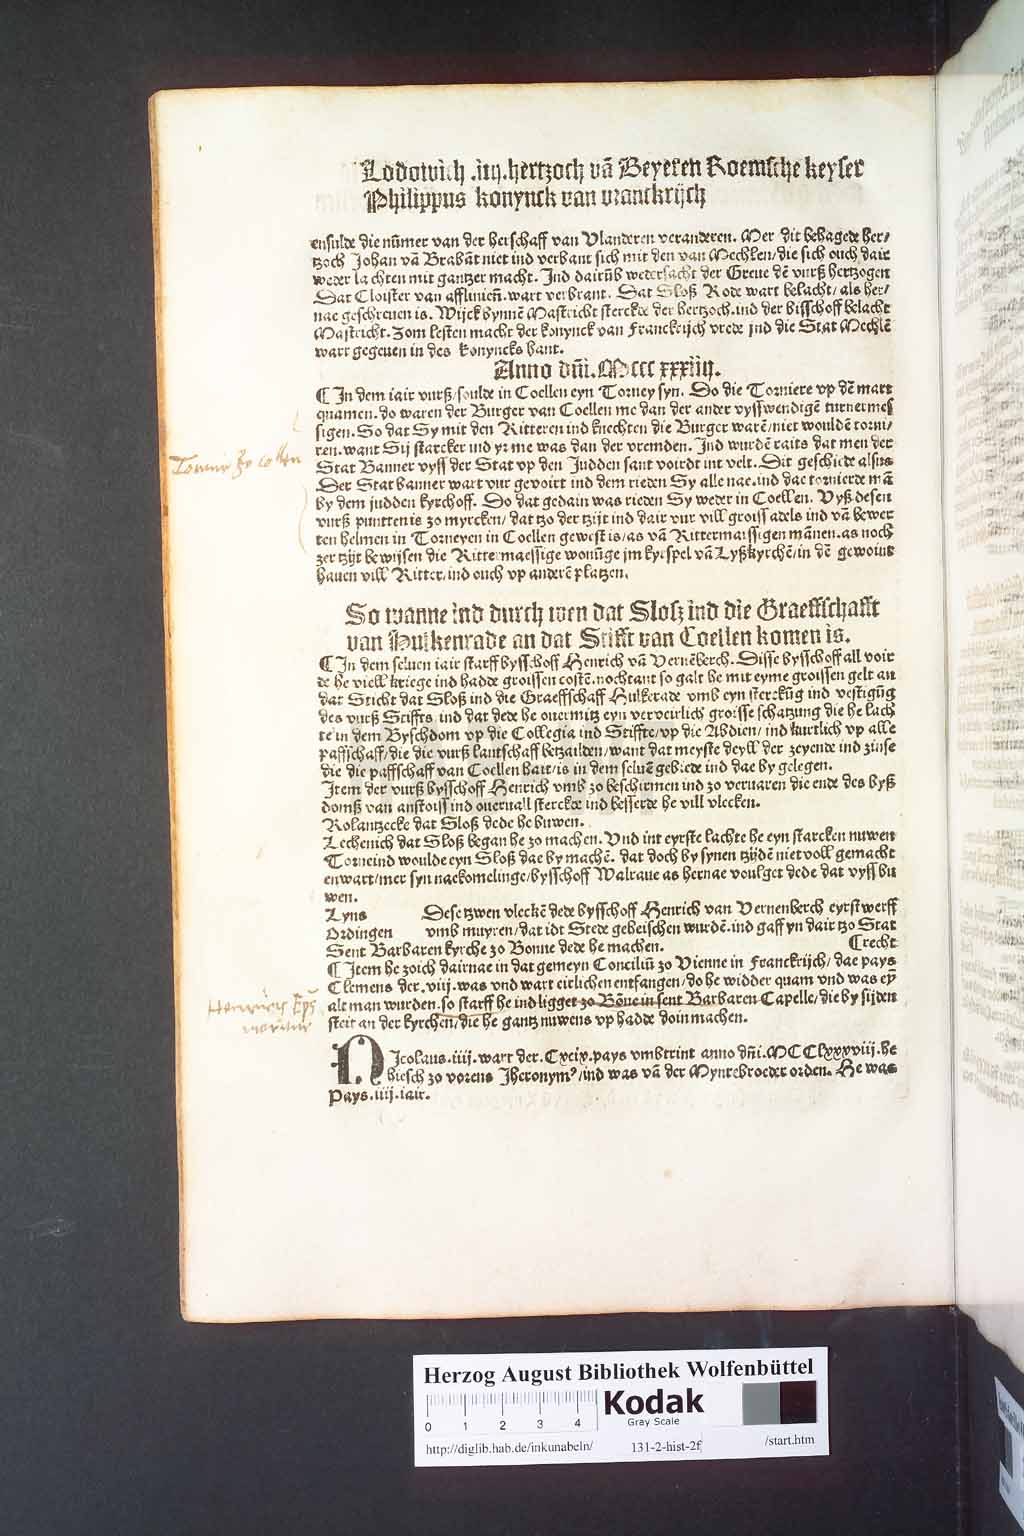 Lodowich .iiij. hertzoch vā Beyeren Roemsche keyser
Philippus konynck van vranckrijch
ensulde die nūmer van der herschaff van Vlanderen veranderen. Mer dit behagede her/
tzoch Johan vā Brabāt niet ind verbant sich mit den van Mechlen/die sich ouch dair
weder lachten mit gantzer macht. Ind dairūb wedersacht der Greue dē vurß hertzogen
Dat Cloister van affluuieñ. wart verbrant. Dat Sloß Rode wart belacht/als her/
nae geschreuen is. Wijck bynnē Mastricht sterckde der hertzoch. ind der bisschoff belacht
Mastricht. Zom lesten macht der konynck van Franckrijch vrede ind die Stat Mechlē
wart gegeuen in des konyncks hant.
Anno dñi. Mccc xxxiiij.
¶ In dem iair vurß/soulde in Coellen eyn Torney syn. Do die Torniere vp dē mart
quamen. do waren der Burger van Coellen me dan der ander vysswendigē turnermes
sigen. So dat Sy mit den Ritteren ind knechten die Burger warē/niet wouldē torni/
ren. want Sij starcker ind yr me was dan der vremden. Ind wurdē raits dat men der
Stat Banner vyss der Stat vp den Judden sant voirdt int velt. Dit geschiede alsus
Der Stat banner wart vur gevoirt ind dem rieden Sy alle nae. ind dae tornierde mā
by dem judden kyrchoff. Do dat gedain was rieden Sy weder in Coellen. Vyß desen
vurß puntten is zo myrcken/dat tzo der tzijt ind dair vur vill groiss adels ind vā bewer
ten helmen in Torneyen in Coellen gewest is/as vā Rittermaissigen mānen. as noch
zer tzijt bewijsen die Rittermaessige wonūge jm kyrspel vā Lyßkyrchē/in dē gewoint
hauen vill Ritter. ind ouch vp anderē platzen.
So wanne ind durch wen dat Sloß ind die Graeffschafft
van Hulkenrade an dat Stifft van Coellen komen is.
¶ In dem seluen iair starff bysschoff Henrich vā Vernēberch. Disse bysschoff all voir
de he viell kriege ind hadde groissen costē. nochtant so galt he mit eyme groissen gelt an
dat Sticht dat Sloß ind die Graeffschaff Hulkerade vmb eyn sterckūg ind vestigūg
des vurß Stiffts ind dat dede he ouermitz eyn verveirlich groisse schatzung die he lach
te in dem Byschdom vp die Collegia ind Stiffte/vp die Abdien/ind kurtlich vp alle
paffschaff/die die vurß lantschaff betzailden/want dat meyste deyll der zeyende ind zinse
die die paffschaff van Coellen hait/is in dem seluē gebiede ind dae by gelegen.
Item der vurß bysschoff Henrich vmb zo beschirmen ind zo veruaren die ende des byß
domß van anstoiss ind ouerual sterckde ind besserde he vill vlecken.
Rolantzecke dat Sloß dede he buwen.
Lechenich dat Sloß began he zo machen. Vnd int eyrste lachte he eyn starcken nuwen
Torneind woulde eyn Sloß dae by machē. dat doch by synen tzijdē niet voll gemacht
enwart/mer syn naekomelinge/bysschoff Walraue as hernae voulget dede dat vyss bu
wen.
Lyns Dese tzwen vleckē dede bysschoff Henrich van Vernenberch eyrstwerff
Ordingen vmb muyren/dat idt Stede geheischen wurdē. ind gaff yn dair tzo Stat
Sent Barbaren kyrche zo Bonne dede he machen. ¶ recht
¶ Item he zoich dairnae in dat gemeyn Conciliū zo Vienne in Franckrijch/dae pays
Clemens der. viij. was vnd wart eirlichen entfangen/do he widder quam vnd was eȳ
alt man wurden. so starff he ind ligget zo Bōne in sent Barbaren Capelle/die by sijden
steit an der kyrchen/die he gantz nuwens vp hadde doin machen.
NJcolaus. iiij. wart der. Cxcix. pays vmbtrint anno dñi. MCClxxxviij. he
hiesch zo vorens Jheronymꝰ/ind was vā der Mynrebroeder orden. He was
Pays. iiij. iair.
Tornir zo collen
Henricus Eps̄
moritur
Herzog August Bibliothek Wolfenbüttel
0 1 2 3 4
Kodak
Gray Scale
http://diglib.hab.de/inkunabeln/ 131-2-hist-2f /start.htm